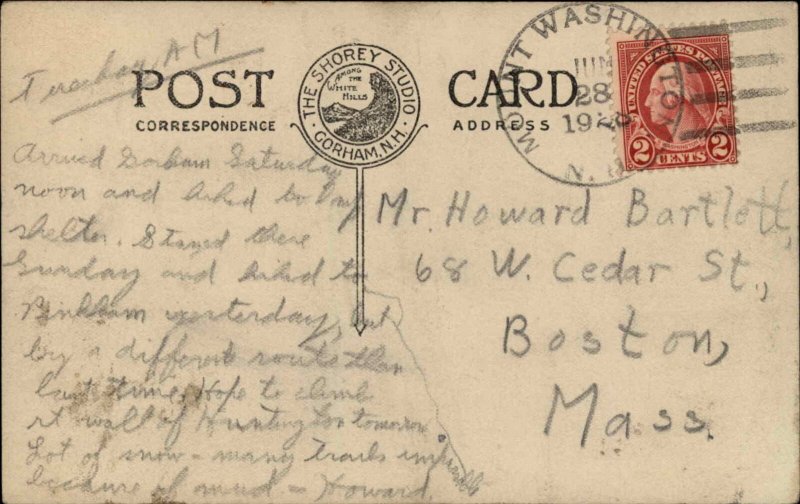 Tuesday, AM
POST CARD
CORRESPONDENCE
ADDRESS
THE SHOREY STUDIO
AMONG THE WHITE HILLS
GORHAM, N.H.
MOUNT WASHINGTON
JUN
28
192
N.
UNITED STATES POSTAGE
2 CENTS 2
Arrived Gorham Saturday
noon and hiked to Imp
shelter. Stayed there
Sunday and hiked to
Pinkham yesterday, but
by a different route than
last time. Hope to climb
rt wall of Huntington tomorrow
Lot of snow - many trails
because of mud - Howard.
Mr. Howard Bartlett,
68 W. Cedar St.,
Boston,
Mass.